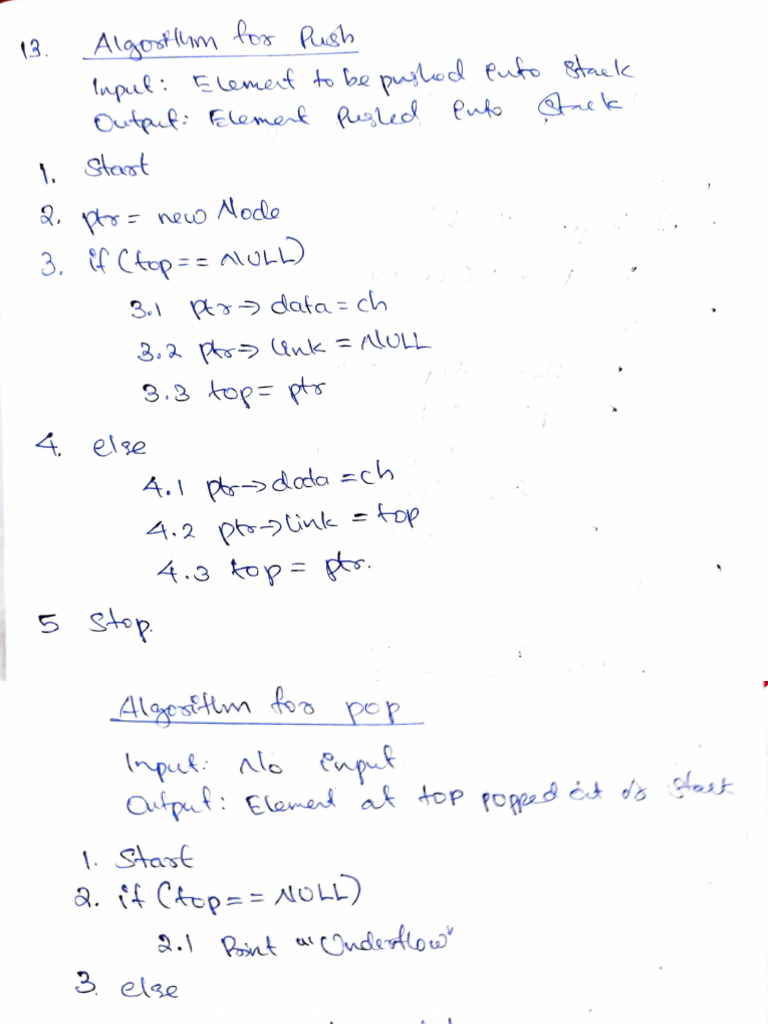 13. Algorithm for Push
Input: Element to be pushed into stack
Output: Element Pushed into Stack
1. Start
2. ptr = new Node
3. if (top == NULL)
3.1 ptr → data = ch
3.2 ptr → link = NULL
3.3 top = ptr
4. else
4.1 ptr → data = ch
4.2 ptr → link = top
4.3 top = ptr.
5 Stop.
Algorithm for pop
Input: No input
Output: Element at top popped out of stack
1. Start
2. if (top == NULL)
2.1 Print "Underflow"
3. else